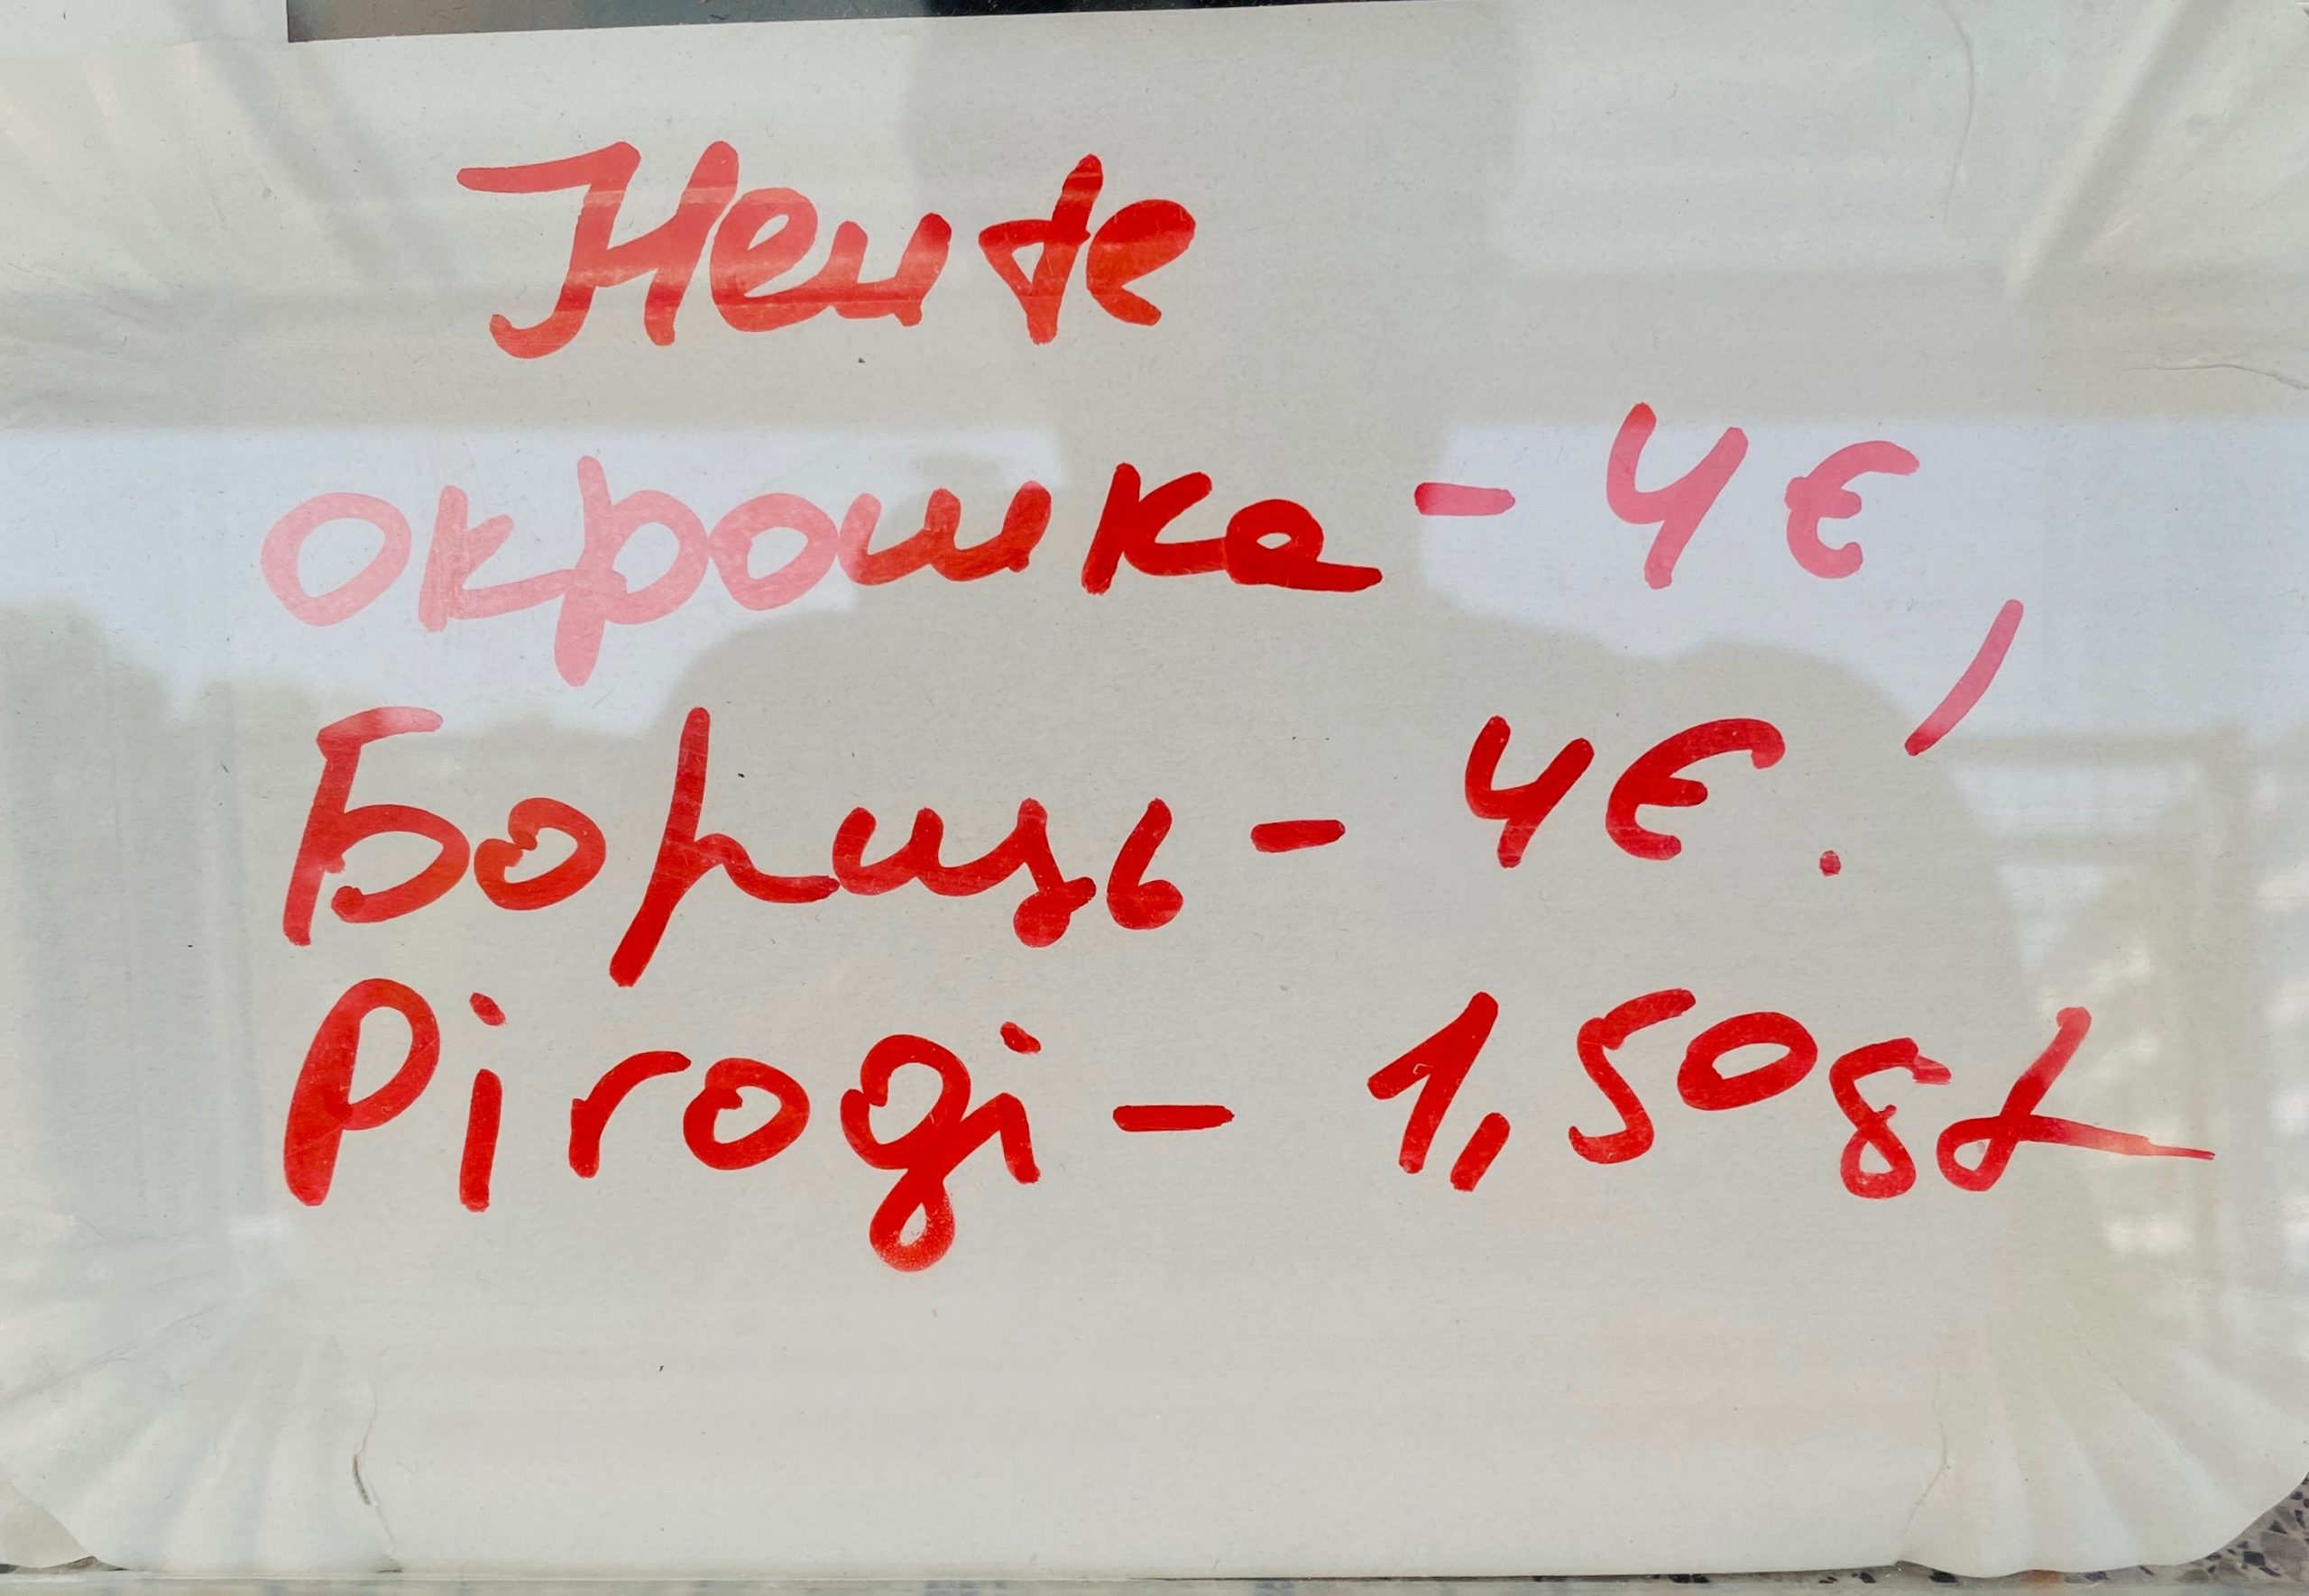 Heute
окрошка - 4€,
Борщь - 4€.
Pirogi - 1,50 St